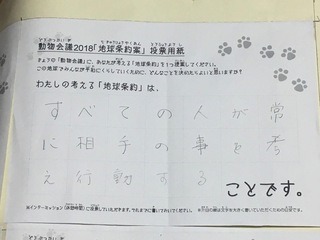 動物会議2018「地球条約案」投票用紙
きょうの「動物会議」に、あなたが考える「地球条約」を1つ提案してください。
この地球でみんなが平和にくらしていくために、どんなことを決めたらよいと思いますか?
わたしの考える「地球条約」は、
すべての人が常
に相手の事を考
え行動する
ことです。